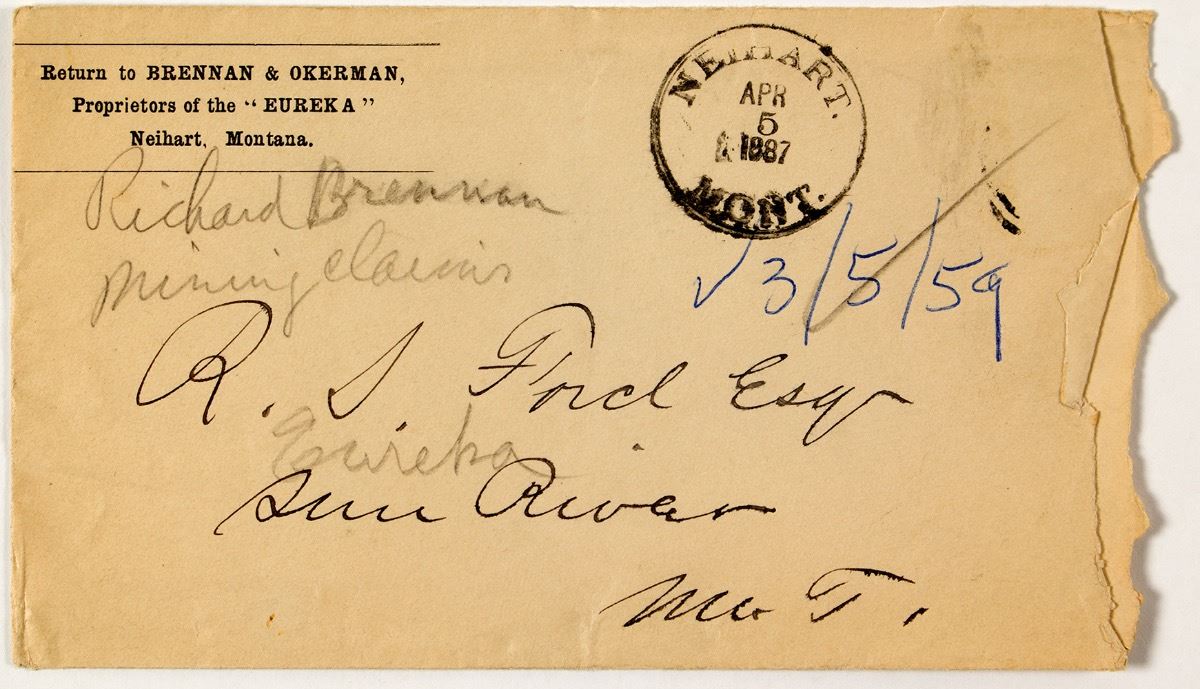 Return to BRENNAN & OKERMAN,
Proprietors of the "EUREKA"
Neihart, Montana.
NEIHART.
APR
5
1887
MONT.
Richard Brennan
mining claims
✓ 3/5/59
R. S. Ford Esq
Eureka
Sun River
M. T.